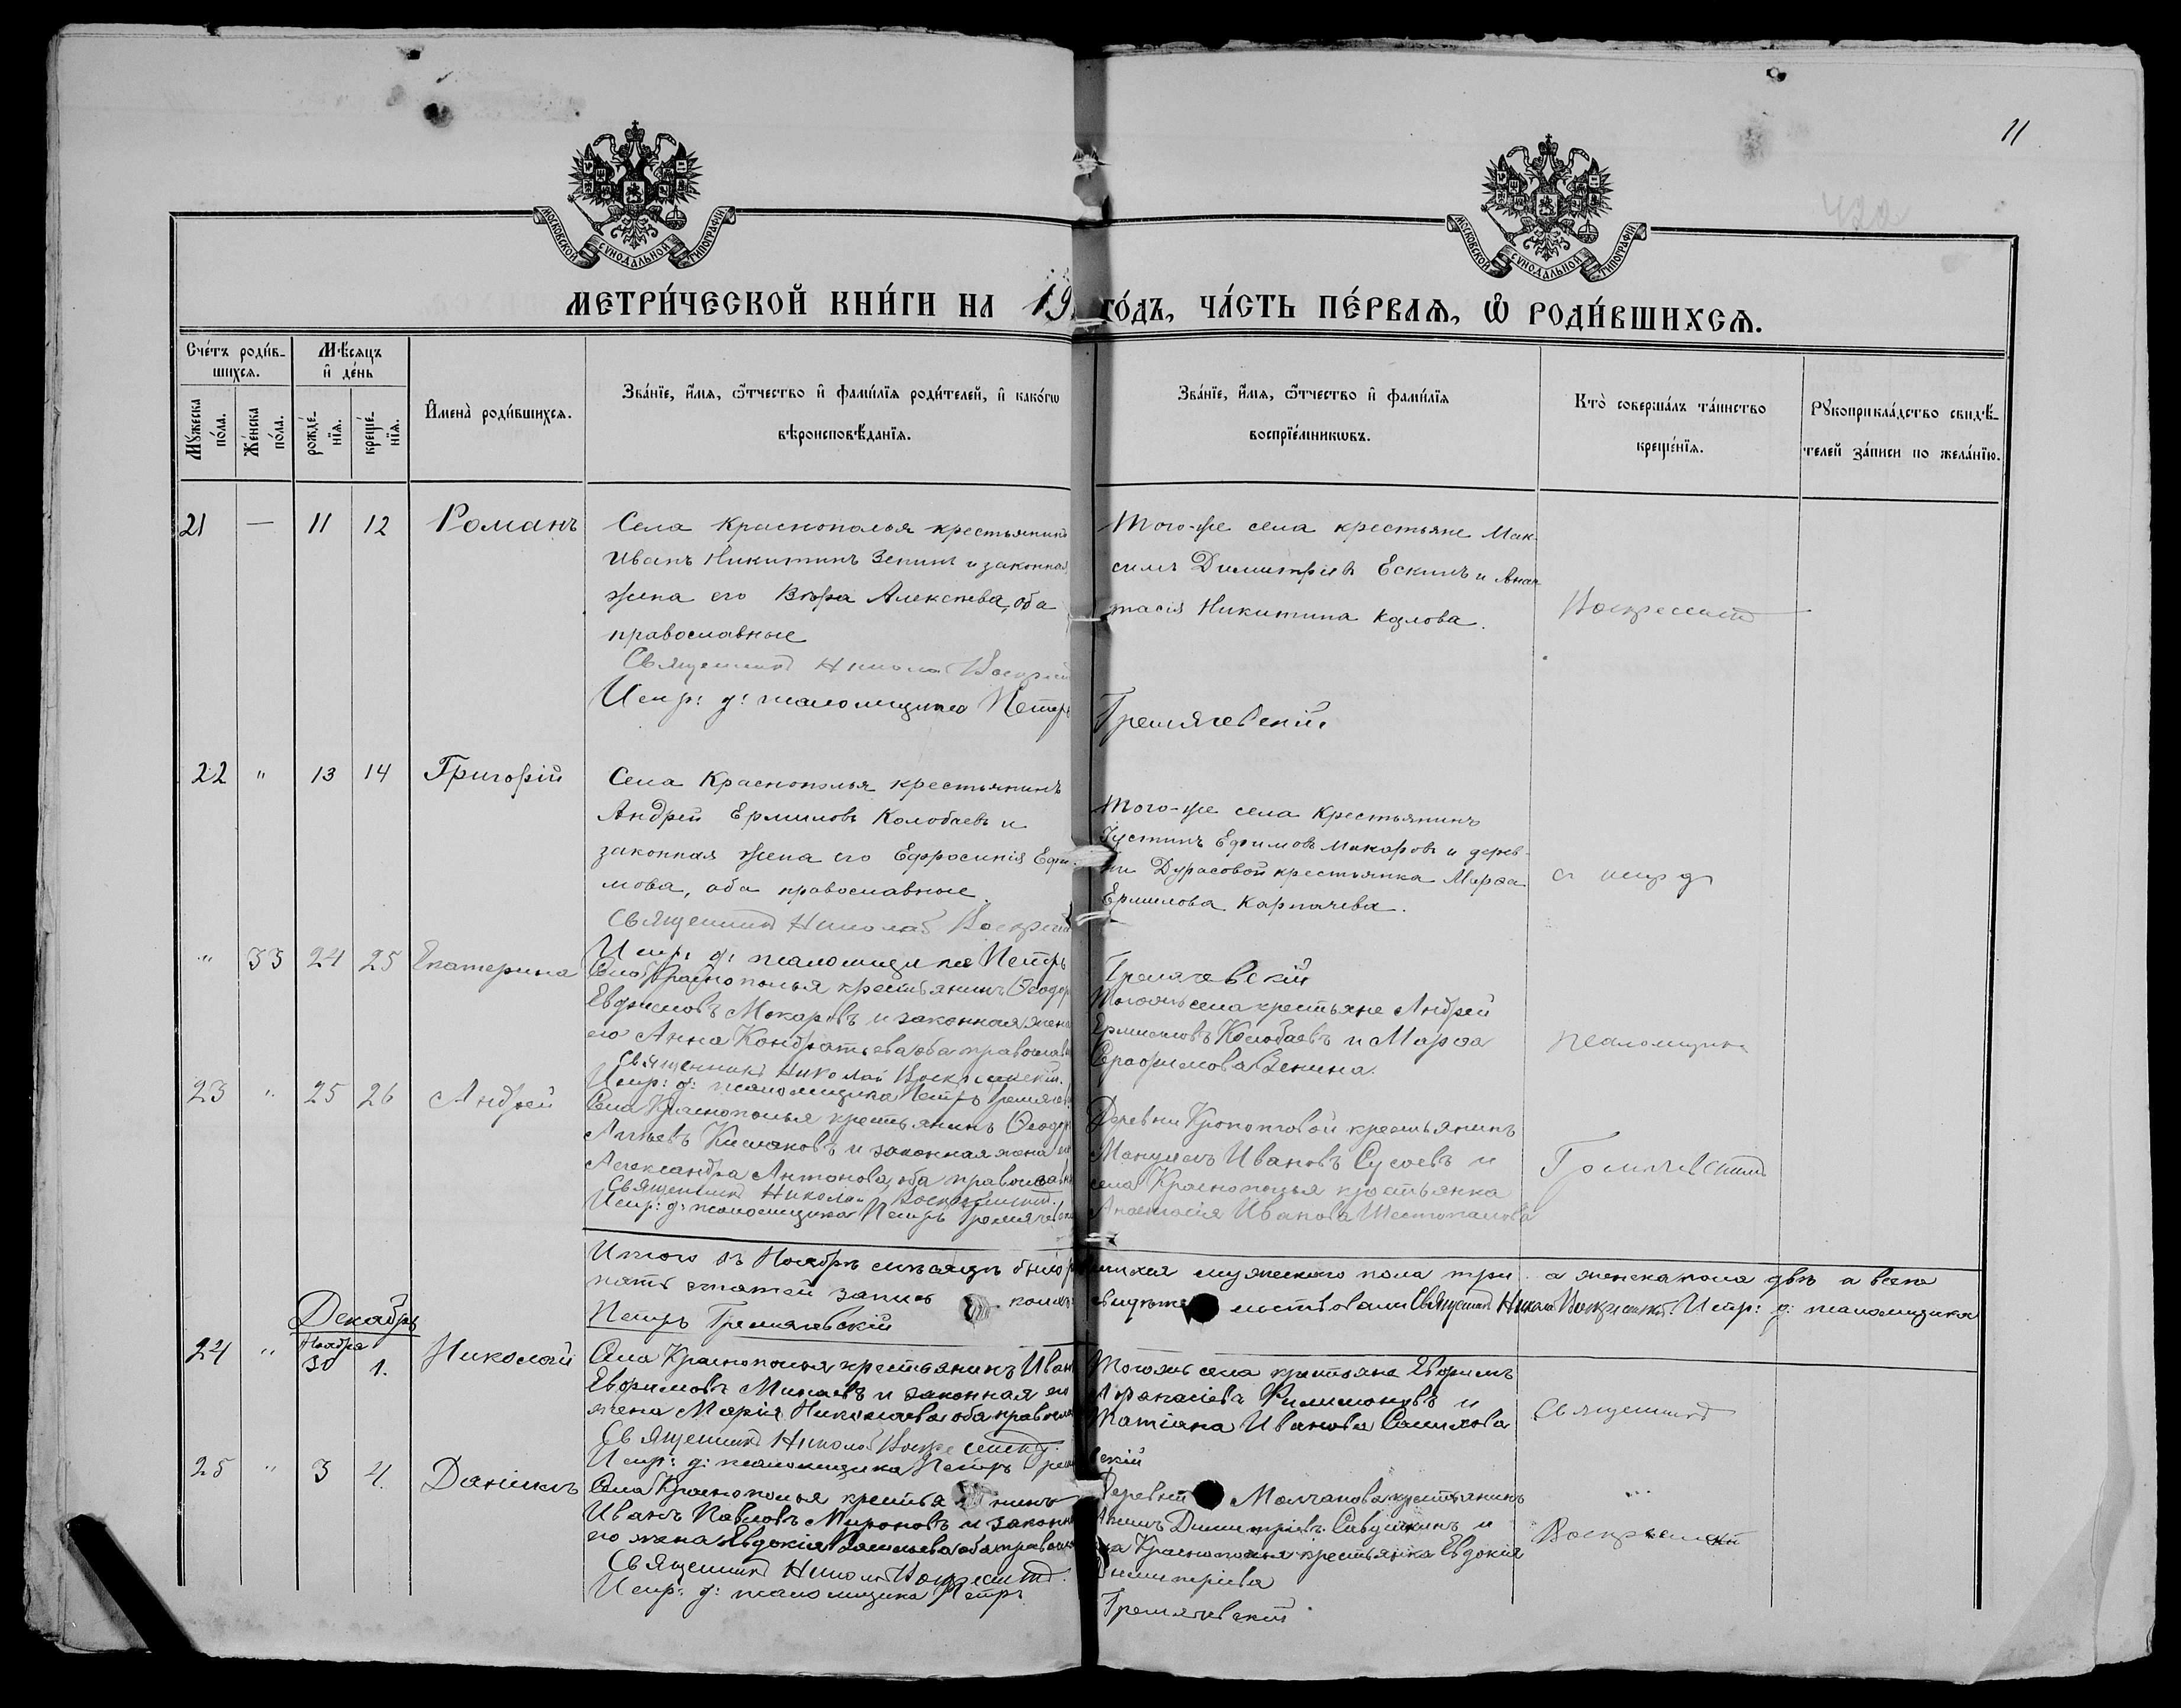 11
МОСКОВСКОЙ СѴНОДАЛЬНОЙ ТИПОГРАФІИ
МОСКОВСКОЙ СѴНОДАЛЬНОЙ ТИПОГРАФІИ
МЕТРИ́ЧЕСКОЙ КНИ́ГИ НА 19 ГО́ДЪ, ЧА́СТЬ ПЕ́РВАѦ, Ѽ РОДИ́ВШИХСѦ.
Сче́тъ роди́в-
шихсѧ.
Мѣ́сѧцъ
и҆ де́нь
Мꙋ́жеска
по́ла.
Же́нска
по́ла.
рожде́-
нїѧ.
креще́-
нїѧ.
И҆мена̀ роди́вшихсѧ.
Зва́нїе, и҆́мѧ, ѻ҆́тчество и҆ фами́лїѧ роди́телей, и҆ како́гѡ
вѣроисповѣ́данїѧ.
Зва́нїе, и҆́мѧ, ѻ҆́тчество и҆ фами́лїѧ
воспрїе́мникѡвъ.
Кто̀ соверша́лъ та́инство
креще́нїѧ.
Рꙋкоприкла́дство свидѣ́-
телей за́писи по жела́нїю.
21 — 11 12 Романъ
Села Краснополья крестьянинъ
Иванъ Никитинъ Зенинъ и законная
жена его Вѣра Алексѣева, оба
православные
Священникъ Николай
Испр: д: псаломщика Петръ
Того-же села крестьяне Мак-
симъ Димитріевъ Ескинъ и Анас-
тасія Никитина Козлова.
Гремячевскій
Воскресенскій
22 " 13 14 Григорій
Села Краснополья крестьянинъ
Андрей Ермиловъ Колобаевъ и
законная жена его Ефросинія Ефи-
мова, оба православные.
Священникъ Николай
Испр: д: псаломщика Петръ
Того-же села крестьянинъ
Іустинъ Ефимовъ Макаровъ и дерев-
ни Дурасовой крестьянка Марѳа
Ермилова Карпачева.
Гремячевскій
с испр д
" 33 24 25 Екатерина
Села Краснополья крестьянинъ Ѳеодоръ
Евфимовъ Макаровъ и законная жена
его Анна Кондратьева оба православн
Священникъ Николай Воскресенскій.
Испр: д: псаломщика Петръ Гремячев
Тогожъ села крестьяне Андрей
Ермиловъ Колобаевъ и Марѳа
Серафимова Зенина.
псаломщика
23 " 25 26 Андрей
Села Краснополья крестьянинъ Ѳеодоръ
и законная жена его
Александра Антонова, оба православн
Священникъ Николай Воскресенскій.
Испр: д: псаломщика Петръ Гремячевск
Деревни Кропотовой крестьянинъ
Мануилъ Ивановъ Сусаевъ и
села Краснополья крестьянка
Анастасія Иванова Шестопалова
Гремячевскій
Итого въ Ноябрѣ мѣсяцѣ было мужескаго пола три а женска пола двѣ а всего
пять статей записи Священникъ Николай Воскресенскій. Испр: д: псаломщика
Петръ Гремячевскій
Декабрь
Ноября
24 " 30 1. Николай
Села Краснополья крестьянинъ Иван
Евфимовъ Минаевъ и законная его
жена Марія Николаева оба православ
Священникъ Николай Воскресенскій.
Испр: д: псаломщика Петръ Грем
Тогожъ села крестьяне Евфимъ
Афанасіевъ Филимоновъ и
Татіана Иванова
скій
Священникъ
25 " 3 4. Даніилъ
Села Краснополья крестьянинъ
Иванъ Павловъ Мироновъ и законн
его жена Евдокія оба православ
Священникъ Николай Воскресенскій.
Испр: д: псаломщика Петръ
Деревни Молчанова крестьянинъ
Димитріевъ и
ла Краснополья крестьянка Евдокія
Димитріева
Гремячевскій
Воскресенскій